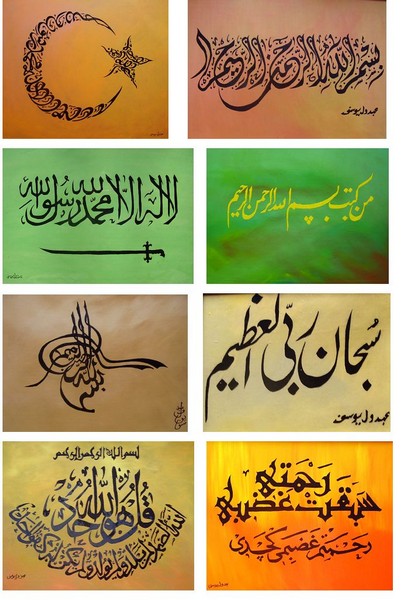 بسم الله الرحمن الرحيم
لا اله الا الله محمد رسول الله
من كتب بسم الله الرحمن الرحيم
بسم الله الرحمن الرحيم
سُبحان ربّي العظيم
بسم الله الرحمن الرحيم
قُل هُوَ اللهُ اَحَد
الله الصمد لم يلد ولم يولد ولم يكن له كفوا احد
رَحمَتي
سَبَقَت غَضَبي
رحمتم غضبمى كچدى